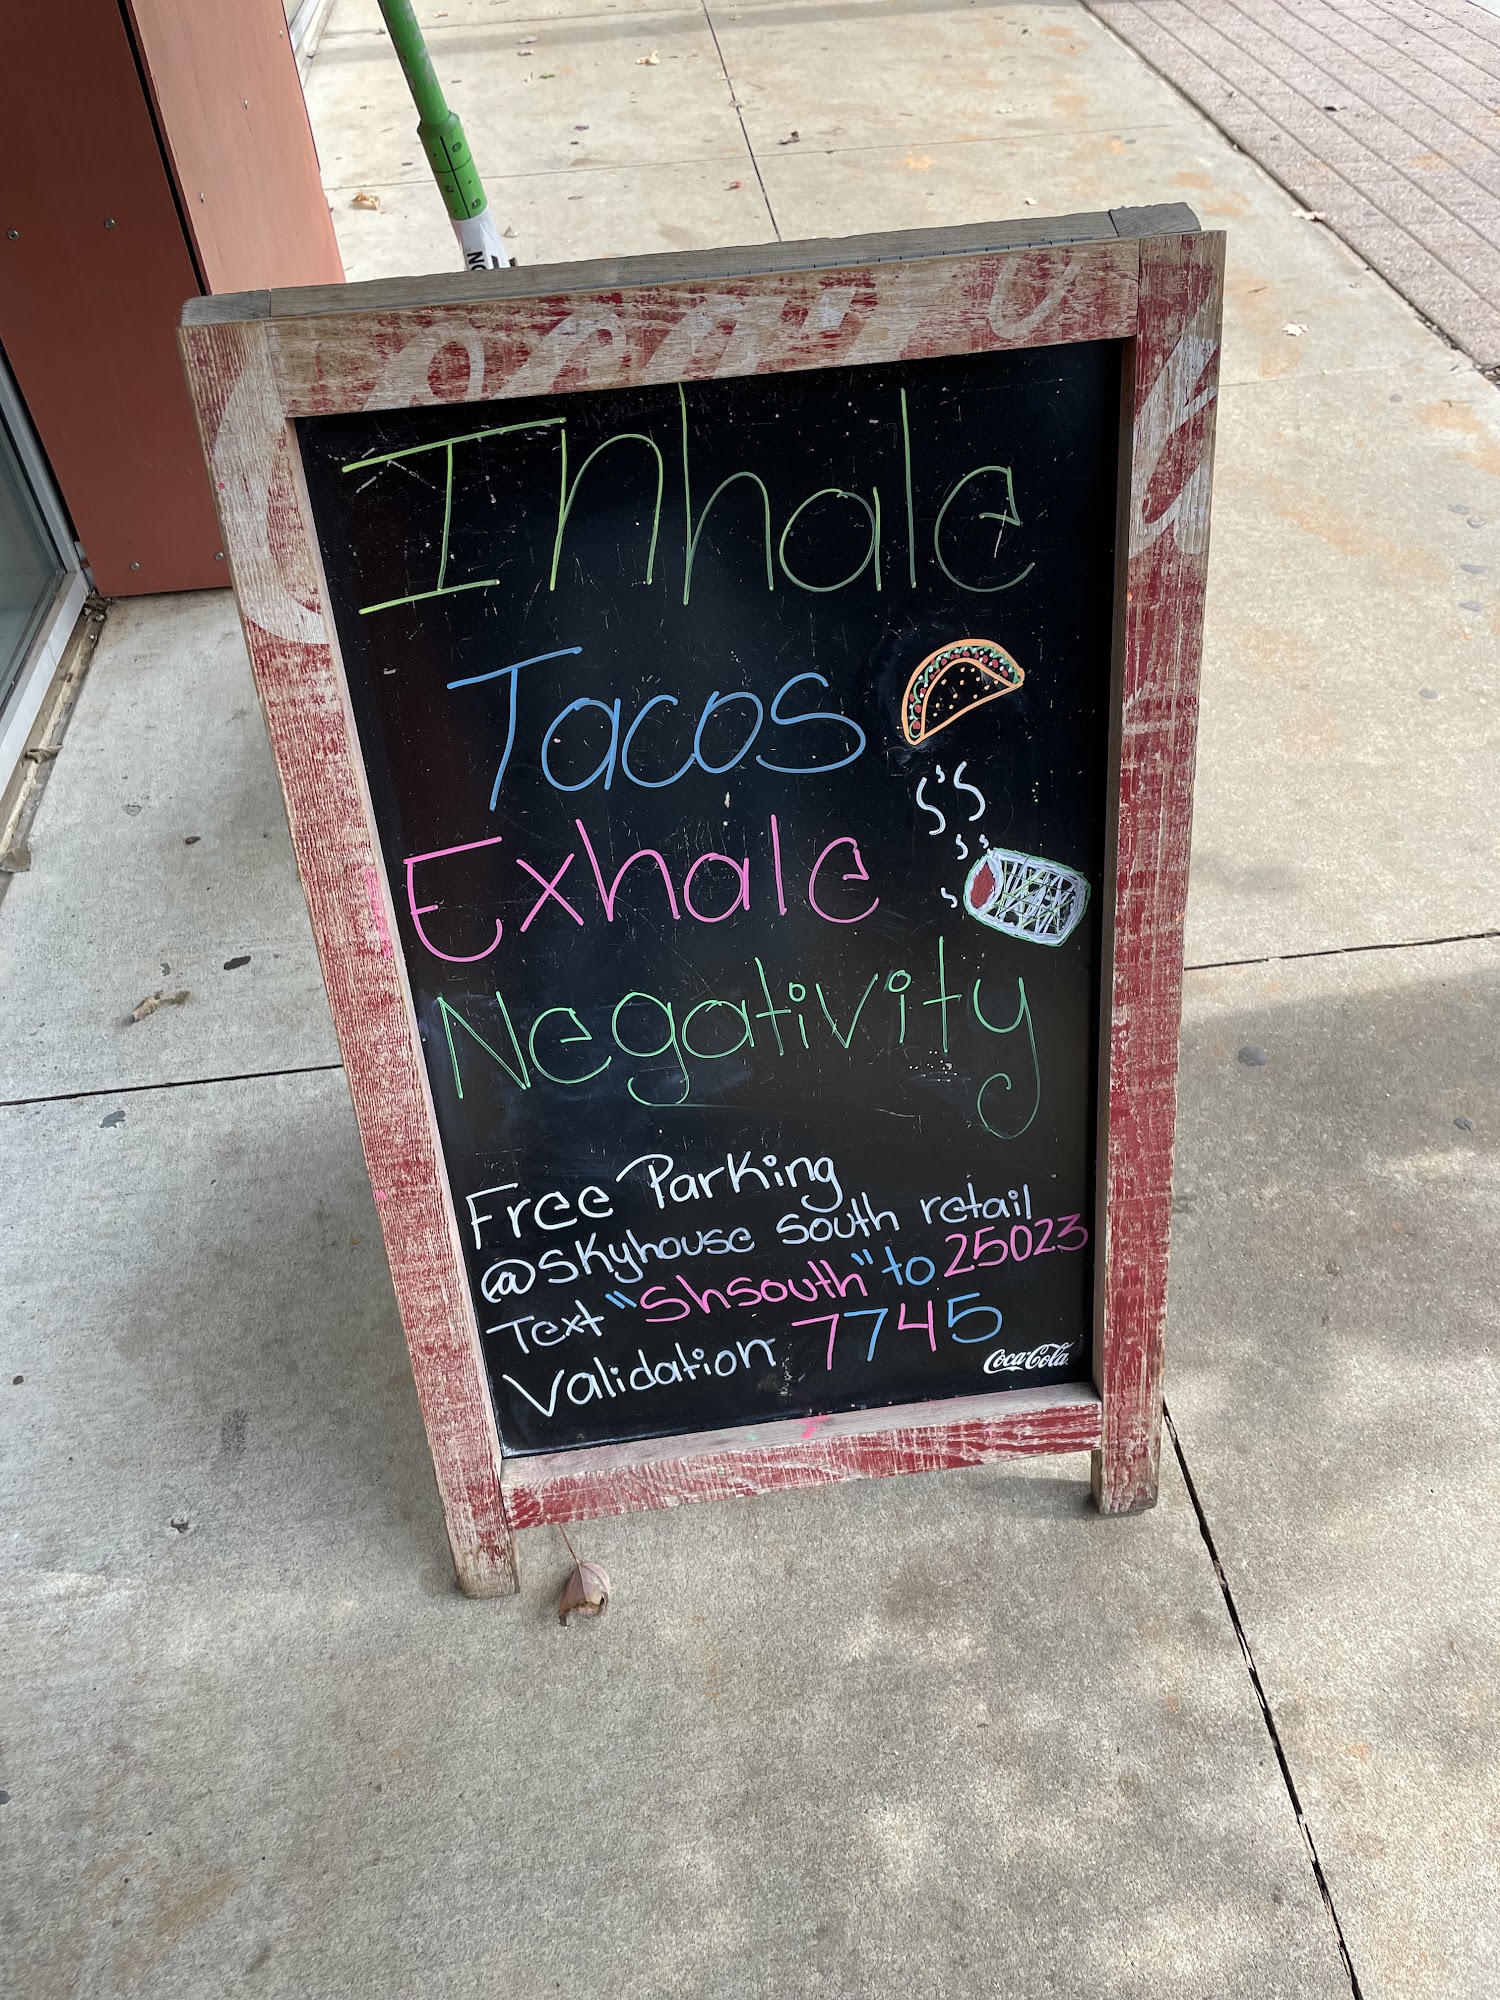 Inhale
Tacos
Exhale
Negativity
Free Parking
@Skyhouse South retail
Text "Shsouth" to 25023
Validation 7745
Coca-Cola